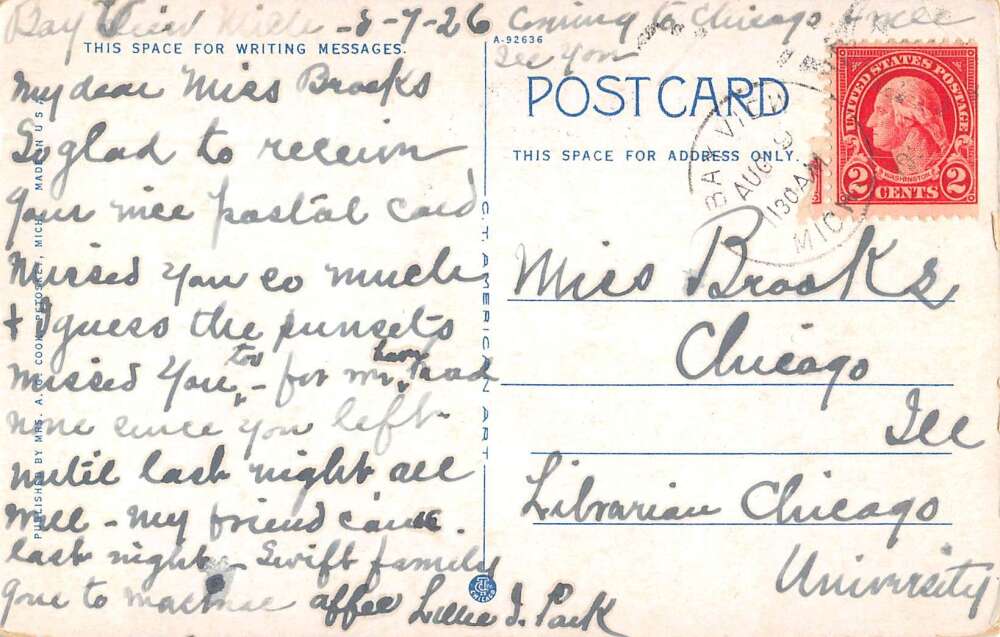 Bay View Mich - 8-7-26
Coming to Chicago & will
see you
THIS SPACE FOR WRITING MESSAGES.
A-92636
POST CARD
THIS SPACE FOR ADDRESS ONLY.
My dear Miss Brooks
So glad to receive
your nice postal card
missed you so much
+ I guess the sunsets
missed you, too - for we have had
none since you left
until last night all
well - my friend came
last night - Swift family
gone to
Lillie I. Park
Miss Brooks
Chicago
Ill
Librarian Chicago
University
PUBLISHED BY MRS. A. G. COOK, PETOSKEY, MICH.
MADE IN U.S.A.
C.T. AMERICAN ART
CHICAGO
BAY VIEW
AUG 9
1130AM
MICH
UNITED STATES POSTAGE
WASHINGTON
2 CENTS 2